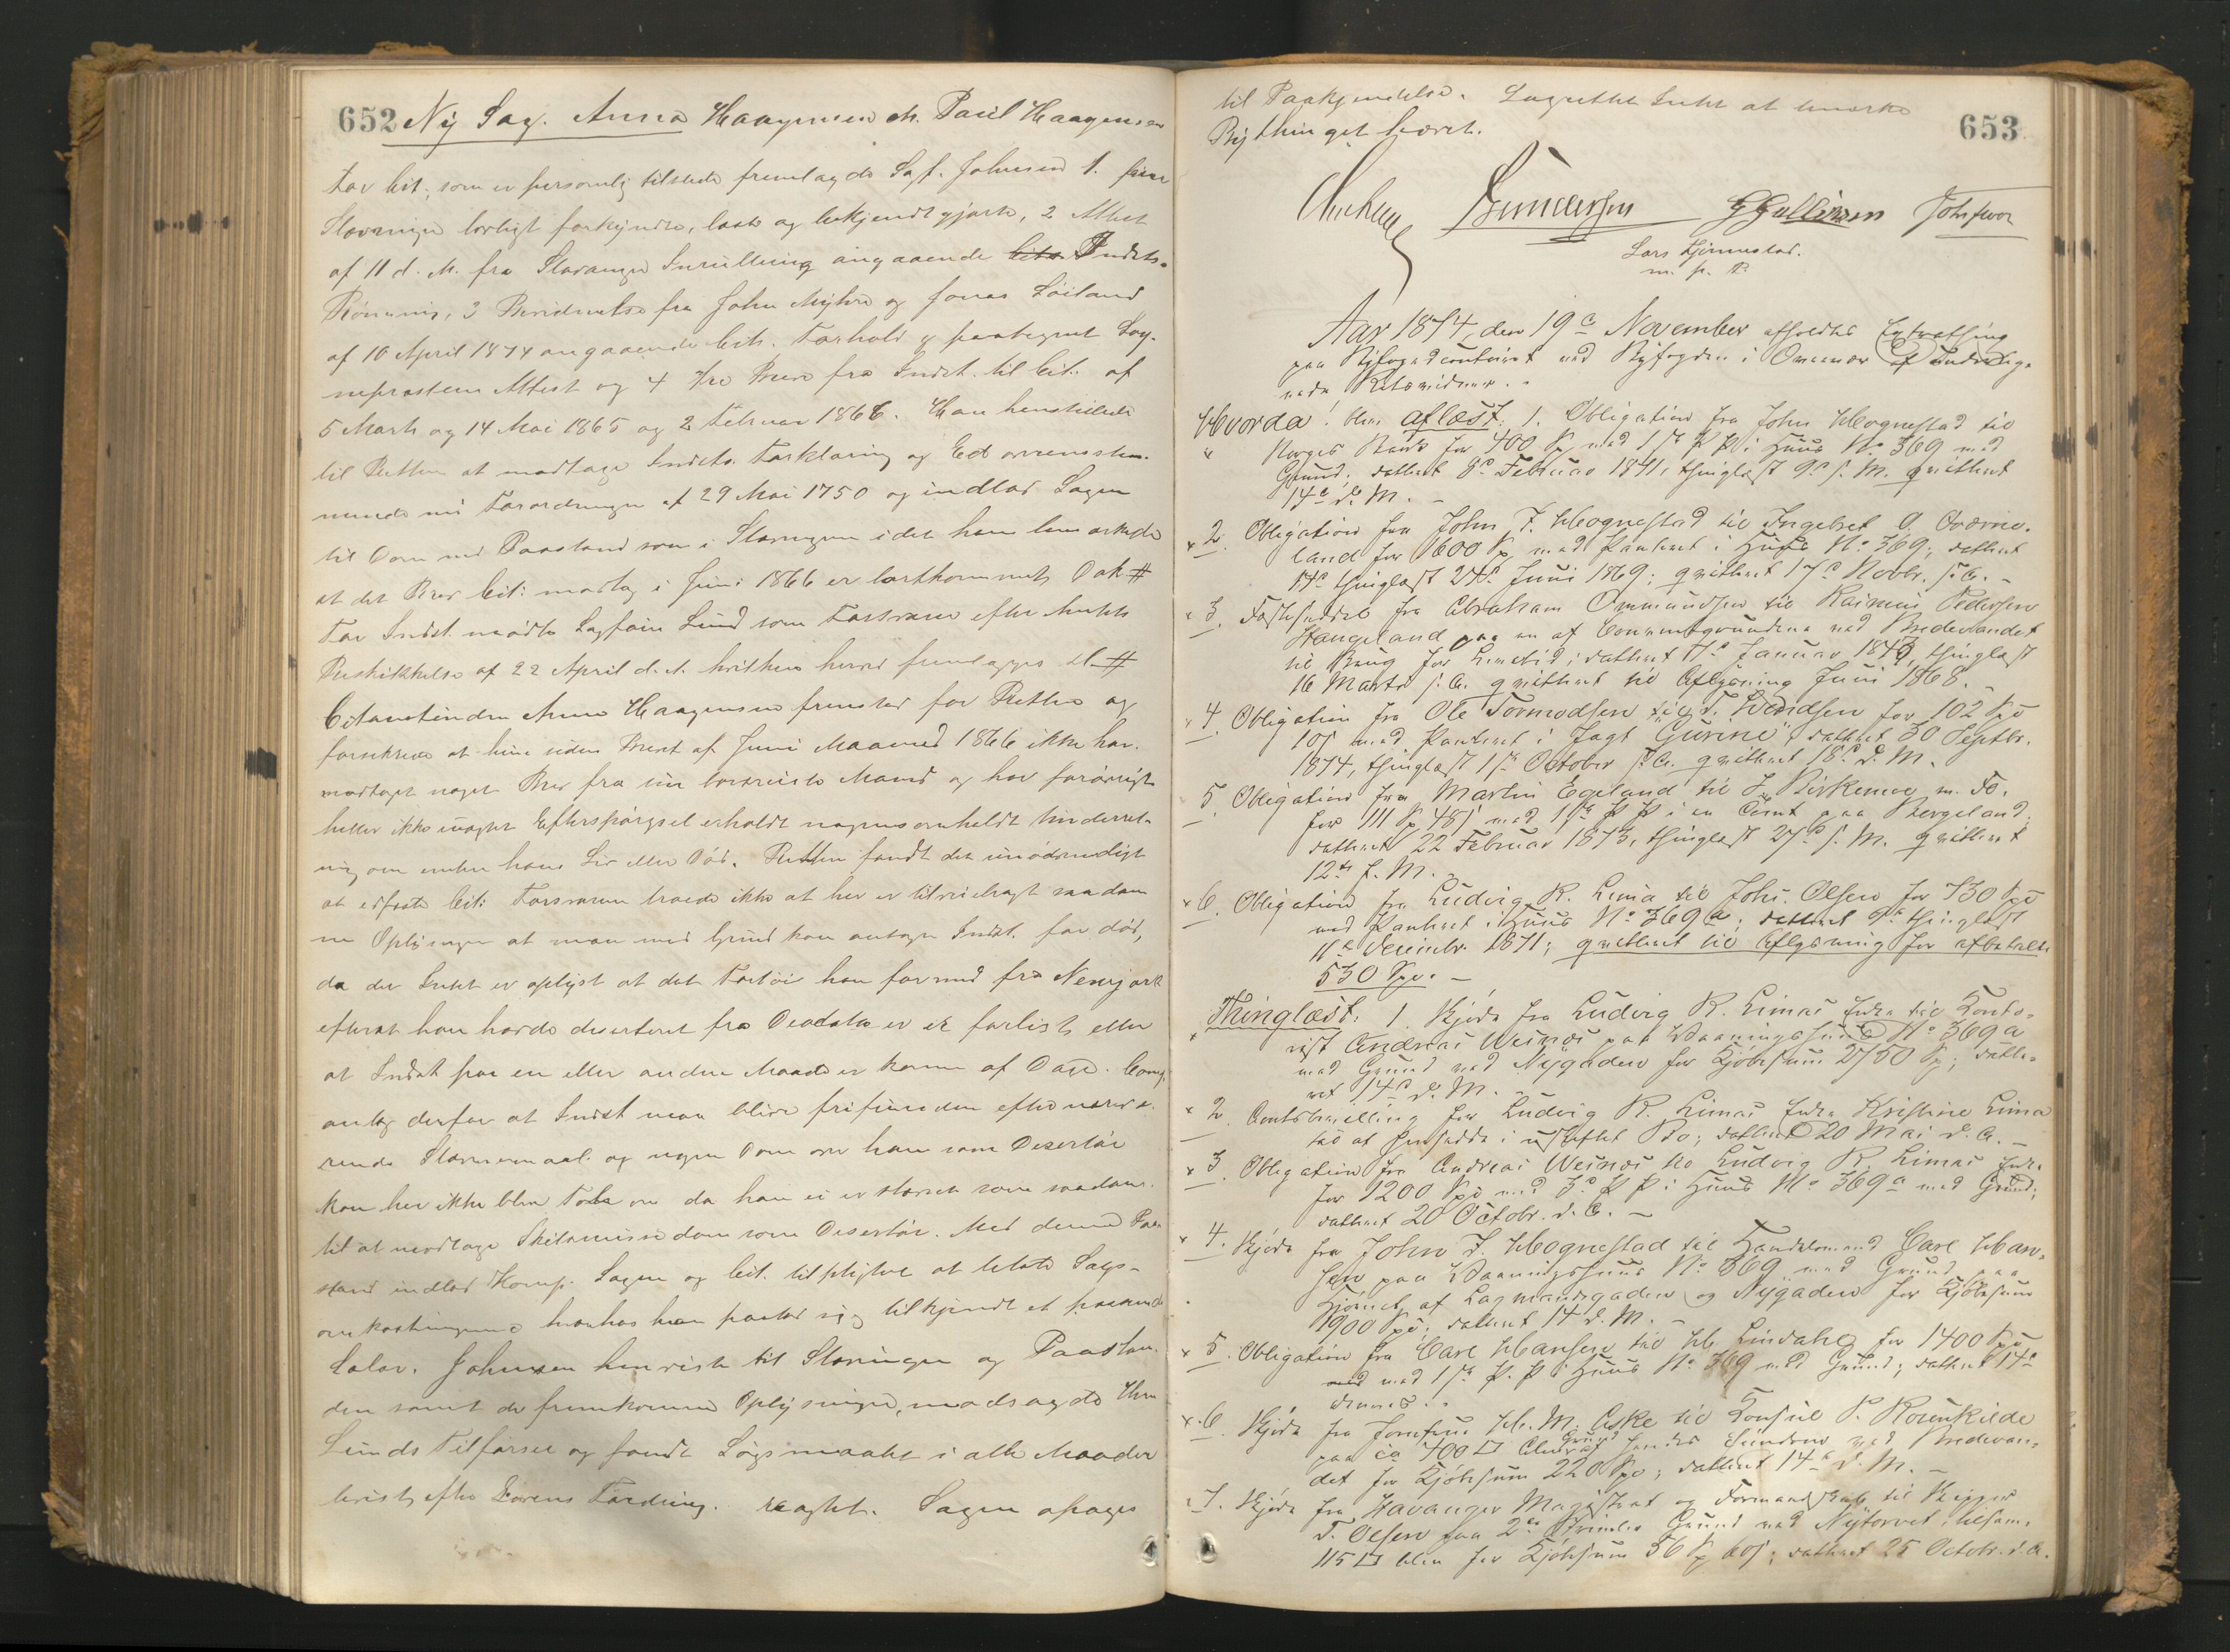 652 Ny Sag. Anna Haagensen ctr. Paul Haagensen
For Cit: som er personlig tilstede fremlagde Sagf. Johnsen 1. sine
Stævninger lovligt forkyndte, læste og bekjendtgjorte, 2 Attest
af 11 d. M. fra Stavanger Inrullering angaaende Indsts.
Rømning, 3 Beridnelse fra John Myhre og Jonas Loiland
af 10 April 1874 angaaende Cits. Forhold og paategnet Sog-
neprestens Attest og 4 tre Breve fra Indst. til Cit. af
5 Marts og 14 Mai 1865 og 2 Februar 1866. Han henstillede
til Retten at modtage Indsts. Forklaring og Ed overensstem-
mende med Forordningen af 29 Mai 1750 og indlod Sagen
til Dom med Paastand som i Stævningen idet han bemærkede
at det Brev Cit: modtog i Juni 1866 er bortkommet, Dok #
For Indst. mødte Sagfører Lund som Forsvarer efter
Beskikkelse af 22 April d. A. hvilken herved fremlægges #
Citantinden Anna Haagensen fremstod for Retten og
forsikrede at hun siden Brevet af Juni Maaned 1866 ikke har
modtaget noget Brev fra sin bortreiste Mand og har forøvrigt
heller ikke uagtet Efterspørgsel erholdt nogensomhelst Underret-
ning om enten hans Liv eller Død. Retten fandt det unødvendigt
at edfæste Cit: Forsvareren troede ikke at her er tilveiebragt saadan-
ne Oplysninger at man med Grund kan antage Indst. for død,
da der Intet er oplyst at det Fartøi han for med fra Newyork
efterat han havde deserteret fra Deodata er forlist, eller
at Indst paa en eller anden Maade er kommen af Dage. Comp.
antog derfor at Indst maa blive frifunden efter nærvæ-
rende Stævnemaal og nogen Dom over ham som Desertør
kan her ikke blive Tale om da han ei er stævnet som saadan
til at modtage Skilsmissedom som Desertør. Med denne Paa-
stand indlod Komp. Sagen og Cit. tilpligtet at betale Sags-
omkostningerne hvorhos han paastod sig tilkjendt et passende
Salær. Johnsen henviste til Stævningen og Paastan-
den samt de fremkomne Oplysninger, modsagde Hr
Lunds Tilførsel og fandt Søgsmaalet i alle Maader
bevist, efter Lovens Fordring. Sagen optages
til Paakjendelse. Lagrettet Intet at bemærke 653
Bythinget hævet.
Gundersen G Gullixsen
Lars Hjimnestad.
m. p. P.
Aar 1874, den 19e November afholdtes Extrathing
paa Byfogedcontoiret ved Byfogden i Overvær af undertegn-
ede Retsvidner.
Hvorda: blev aflæst: 1. Obligation fra John Hognestad til
Norges Bank for 400 Sp med 1ste P P i Huus No 369 med
Grund, dateret 8de Februar 1871, thinglæst 9de s. M. qvitteret
14de d. M. –
2. Obligation fra John T. Hognestad til Ingebret O.
land for 1600 Sp med Panteret i Huus No 369; dateret
17de thinglæst 24de Juni 1869; qvitteret 17de Novbr. d. A. –
3. Fæsteseddel fra Abraham Ommundsen til Rasmus Pedersen
Stangeland paa en af Communegrundene ved Bredevandet
til Brug for Livstid; dateret 11te Januar 1849, thinglæst
16 Marts s. A. qvitteret til Aflysning Juni 1868. –
4. Obligation fra Ole Tormodsen til T. Svendsen for 102 Spd
10s med Panteret i Jagt "Gurine", dateret 30 Septbr.
1874, thinglæst 1ste October s. A. qvitteret 18de d. M.
5. Obligation fra Martin Egeland til J. Birkemoe m. Fl.
for 111 Sp 48s med 1ste P P i en Tomt paa Bergeland,
dateret 22 Februar 1873, thinglæst 27de s. M. qvitteret
12te f. M. –
6. Obligation fra Ludvig R. Lima til Johs. Olsen for 730 Spd
med Panteret i Huus No 369a; dateret 9de thinglæst
11te Decembr 1871; qvitteret til Aflysning for afbetalte
530 Spd. –
Thinglæst: 1. Skjøde fra Ludvig R. Limas Enke til Konto-
rist Andreas Weisnæs paa Vaaningshuus No 369a
med Grund ved Nygaden for Kjøbesum 2750 Sp; date-
ret 14de d. M. –
2. Amtsbevilling for Ludvig R. Limas Enke Kristine Lima
til at hensidde i uskiftet Bo; dateret 20 Mai d. A. –
3. Obligation fra Andreas Weisnæs til Ludvig R. Limas Enke
for 1200 Spd med 3de P P i Huus No 369a med Grund;
dateret 20 Octobr. d. A. –
4. Skjøde fra John T. Hognestad til Handelsmand Carl Han-
sen paa Vaaningshuus No 369 med Grund paa
Hjørnet af Lagmandsgaden og Nygaden for Kjøbesum
1900 Spd; dateret 14 d. M. –
5. Obligation fra Carl Hansen til H. Lindahl for 1400 Spd
med med 1ste P. P i Huus No 369 med Grund; dateret 14de
dennes.
6. Skjøde fra Jomfru H. M. Aske til Konsul P. Rosenkilde
paa ca 700 □ Alen Grund af hendes Eiendom ved Bredevan-
det for Kjøbesum 220 Spd; dateret 14de d. M. –
7. Skjøde fra Stavanger Magistrat og Formandskab til Skipper
T. Olsen paa 2de Grund ved Nytorvet, tilsam.
115 □ Alen for Kjøbesum 56 Sp 60s; dateret 25 Octobr. d. A.